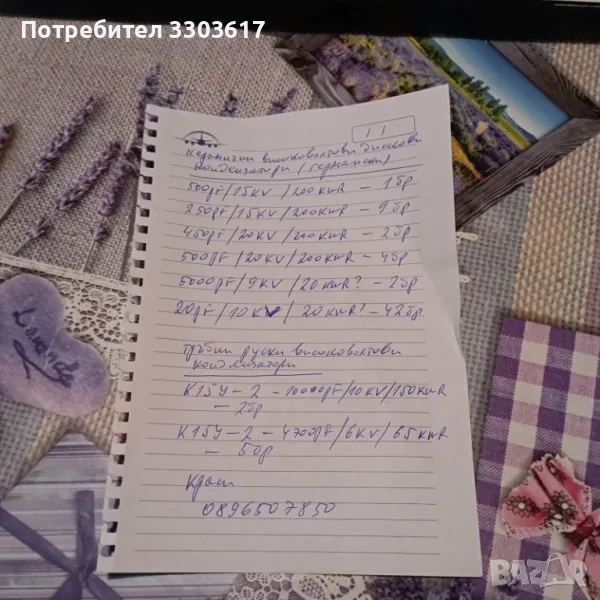 Потребител 3303617
11
Керамични високоволтови дискови
кондензатори / германски /
500pF/15KV/200KWR – 1бр
250pF/15KV/200KWR – 9бр
450pF/20KV/200KWR – 2бр
500pF/20KV/200KWR – 4бр
5000pF/9KV/20KWR? – 2бр
20pF/10KV/20KWR? – 42бр
Тръбни руски високоволтови
кондензатори
К15У – 2 – 10000pF/10KV/150KWR
– 2бр
К15У – 2 – 4700pF/6KV/65KWR
– 5бр
Край
0896507850
Lavande
BAZAR